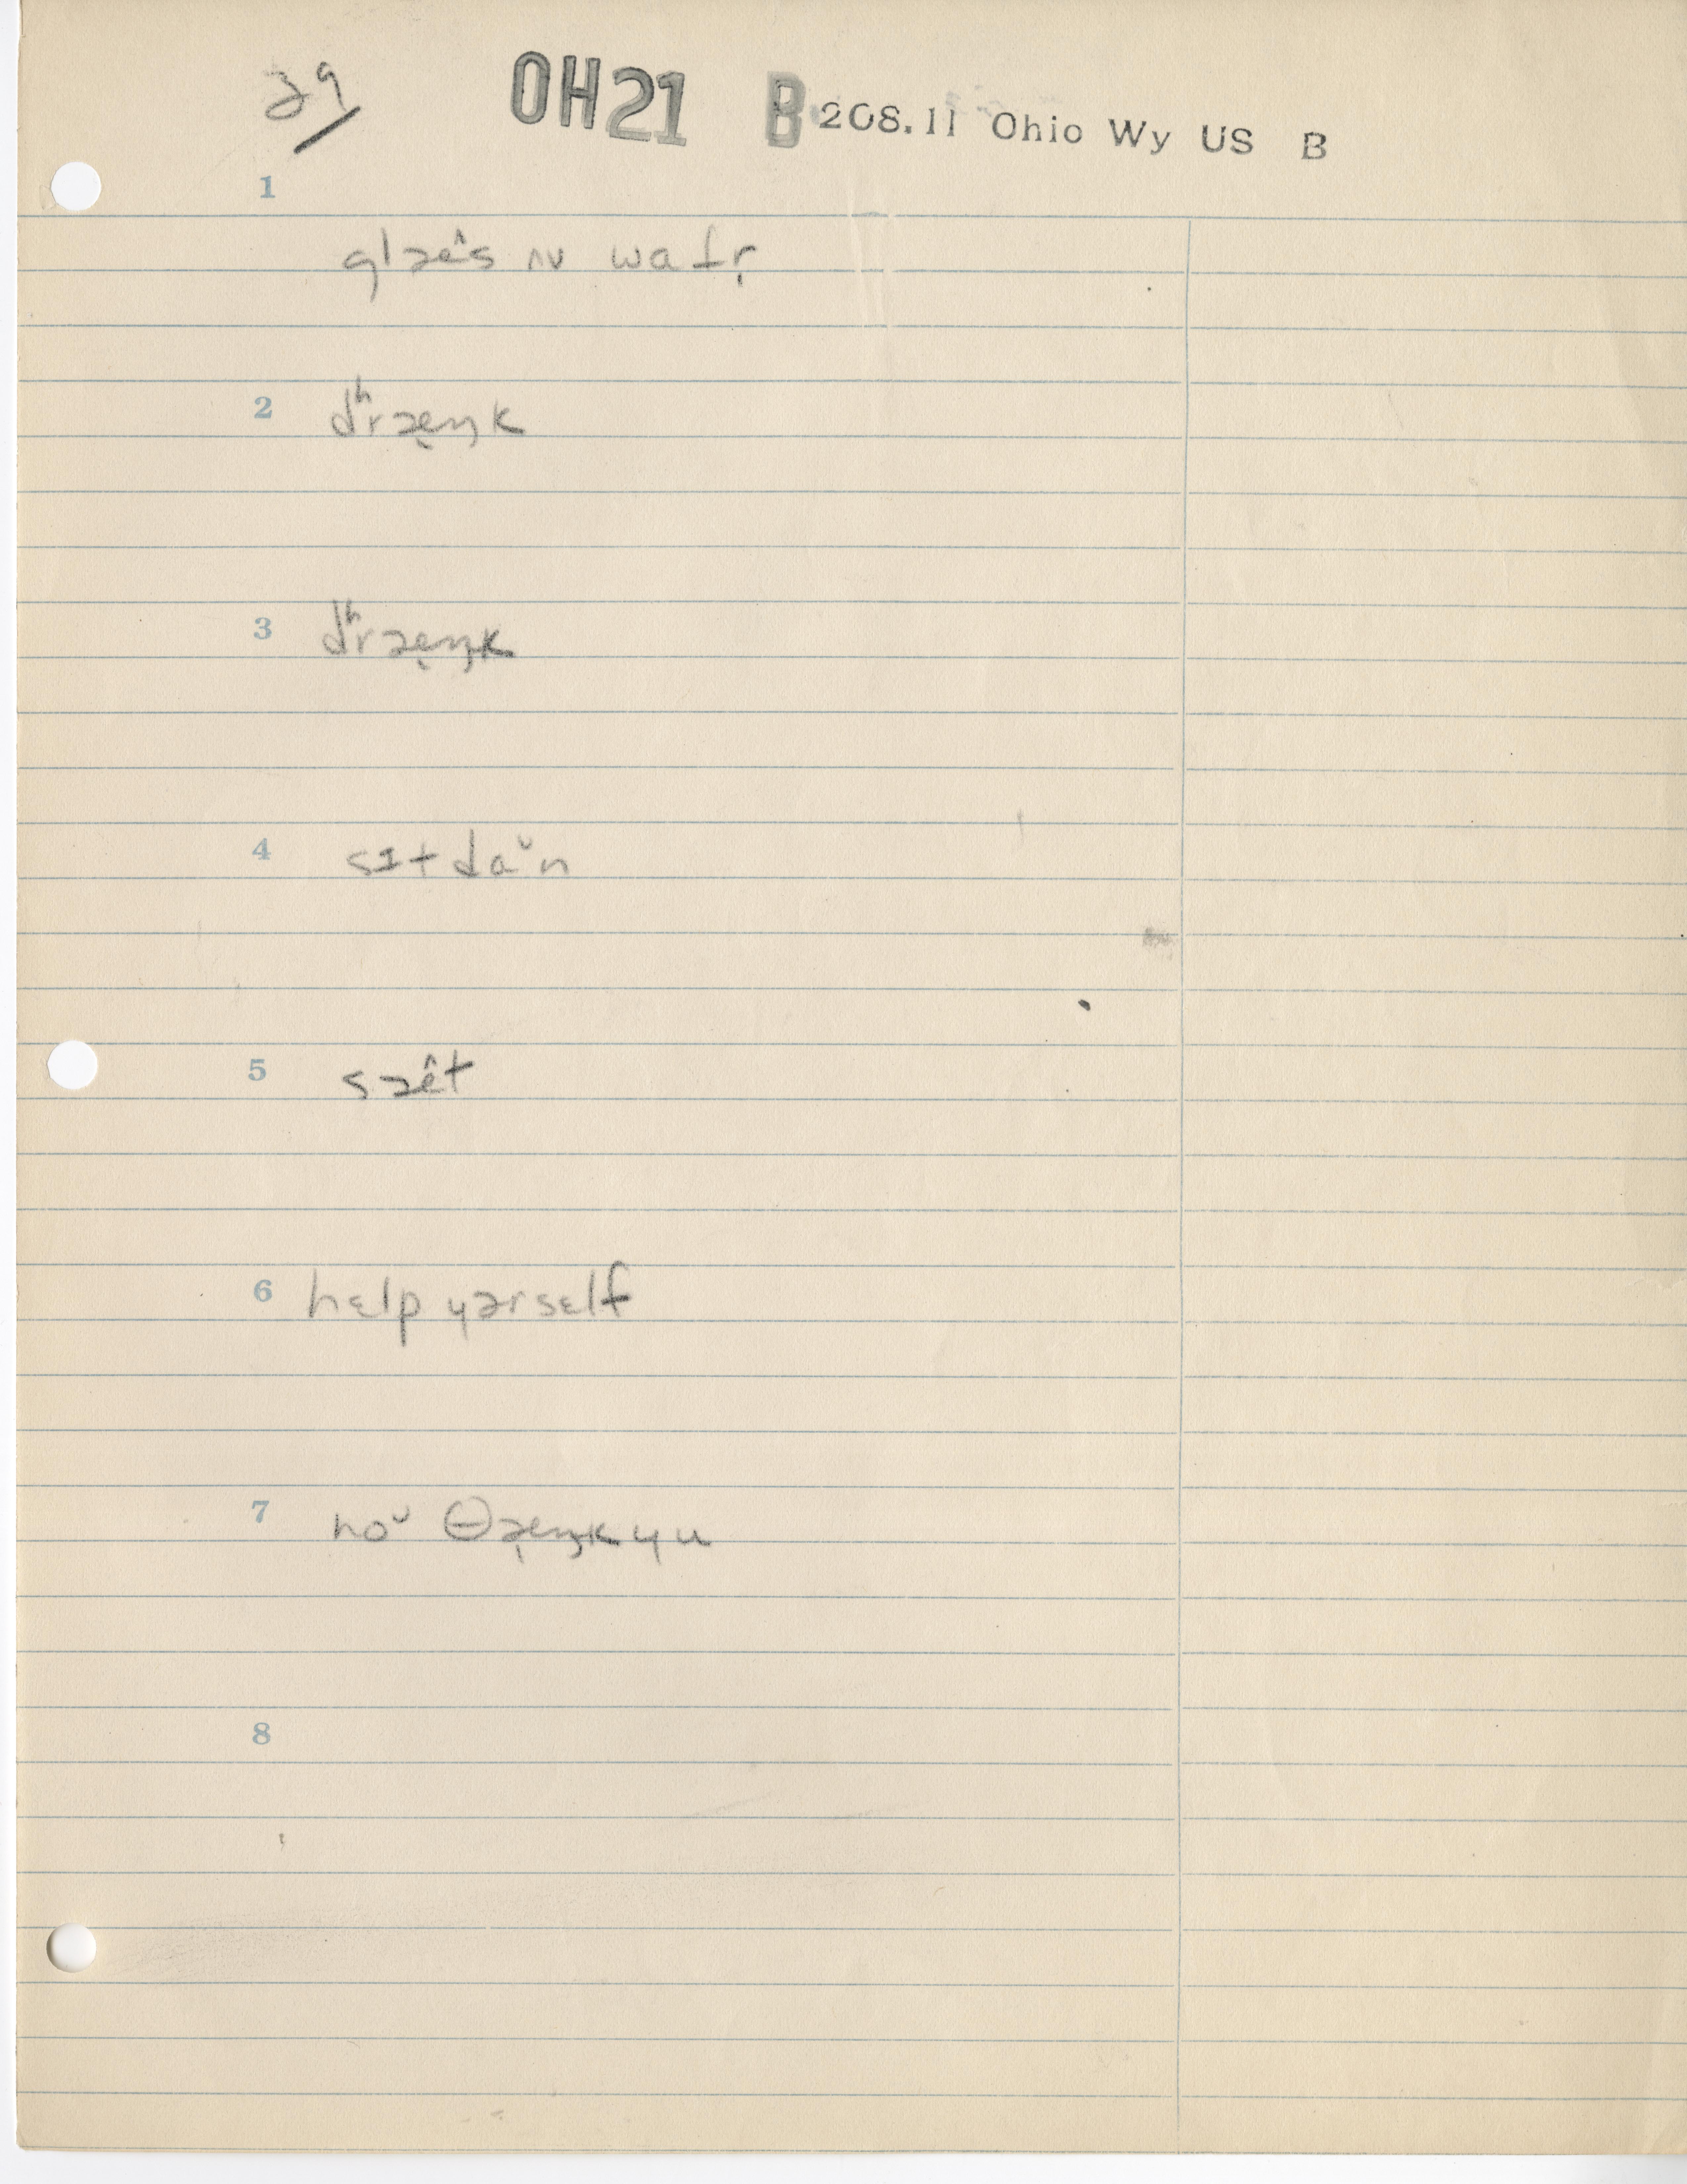 39
OH21 B 208.11 Ohio Wy US B
1
glæ^s ʌv wat̬r̩
2 dʰræ̨ŋk
3 dʰræ̨ŋk
4 sɪt daᵘn
5 sæ^t
6 hɛlp yərsɛlf
7 noᵘ θæ̨ŋk yu
8